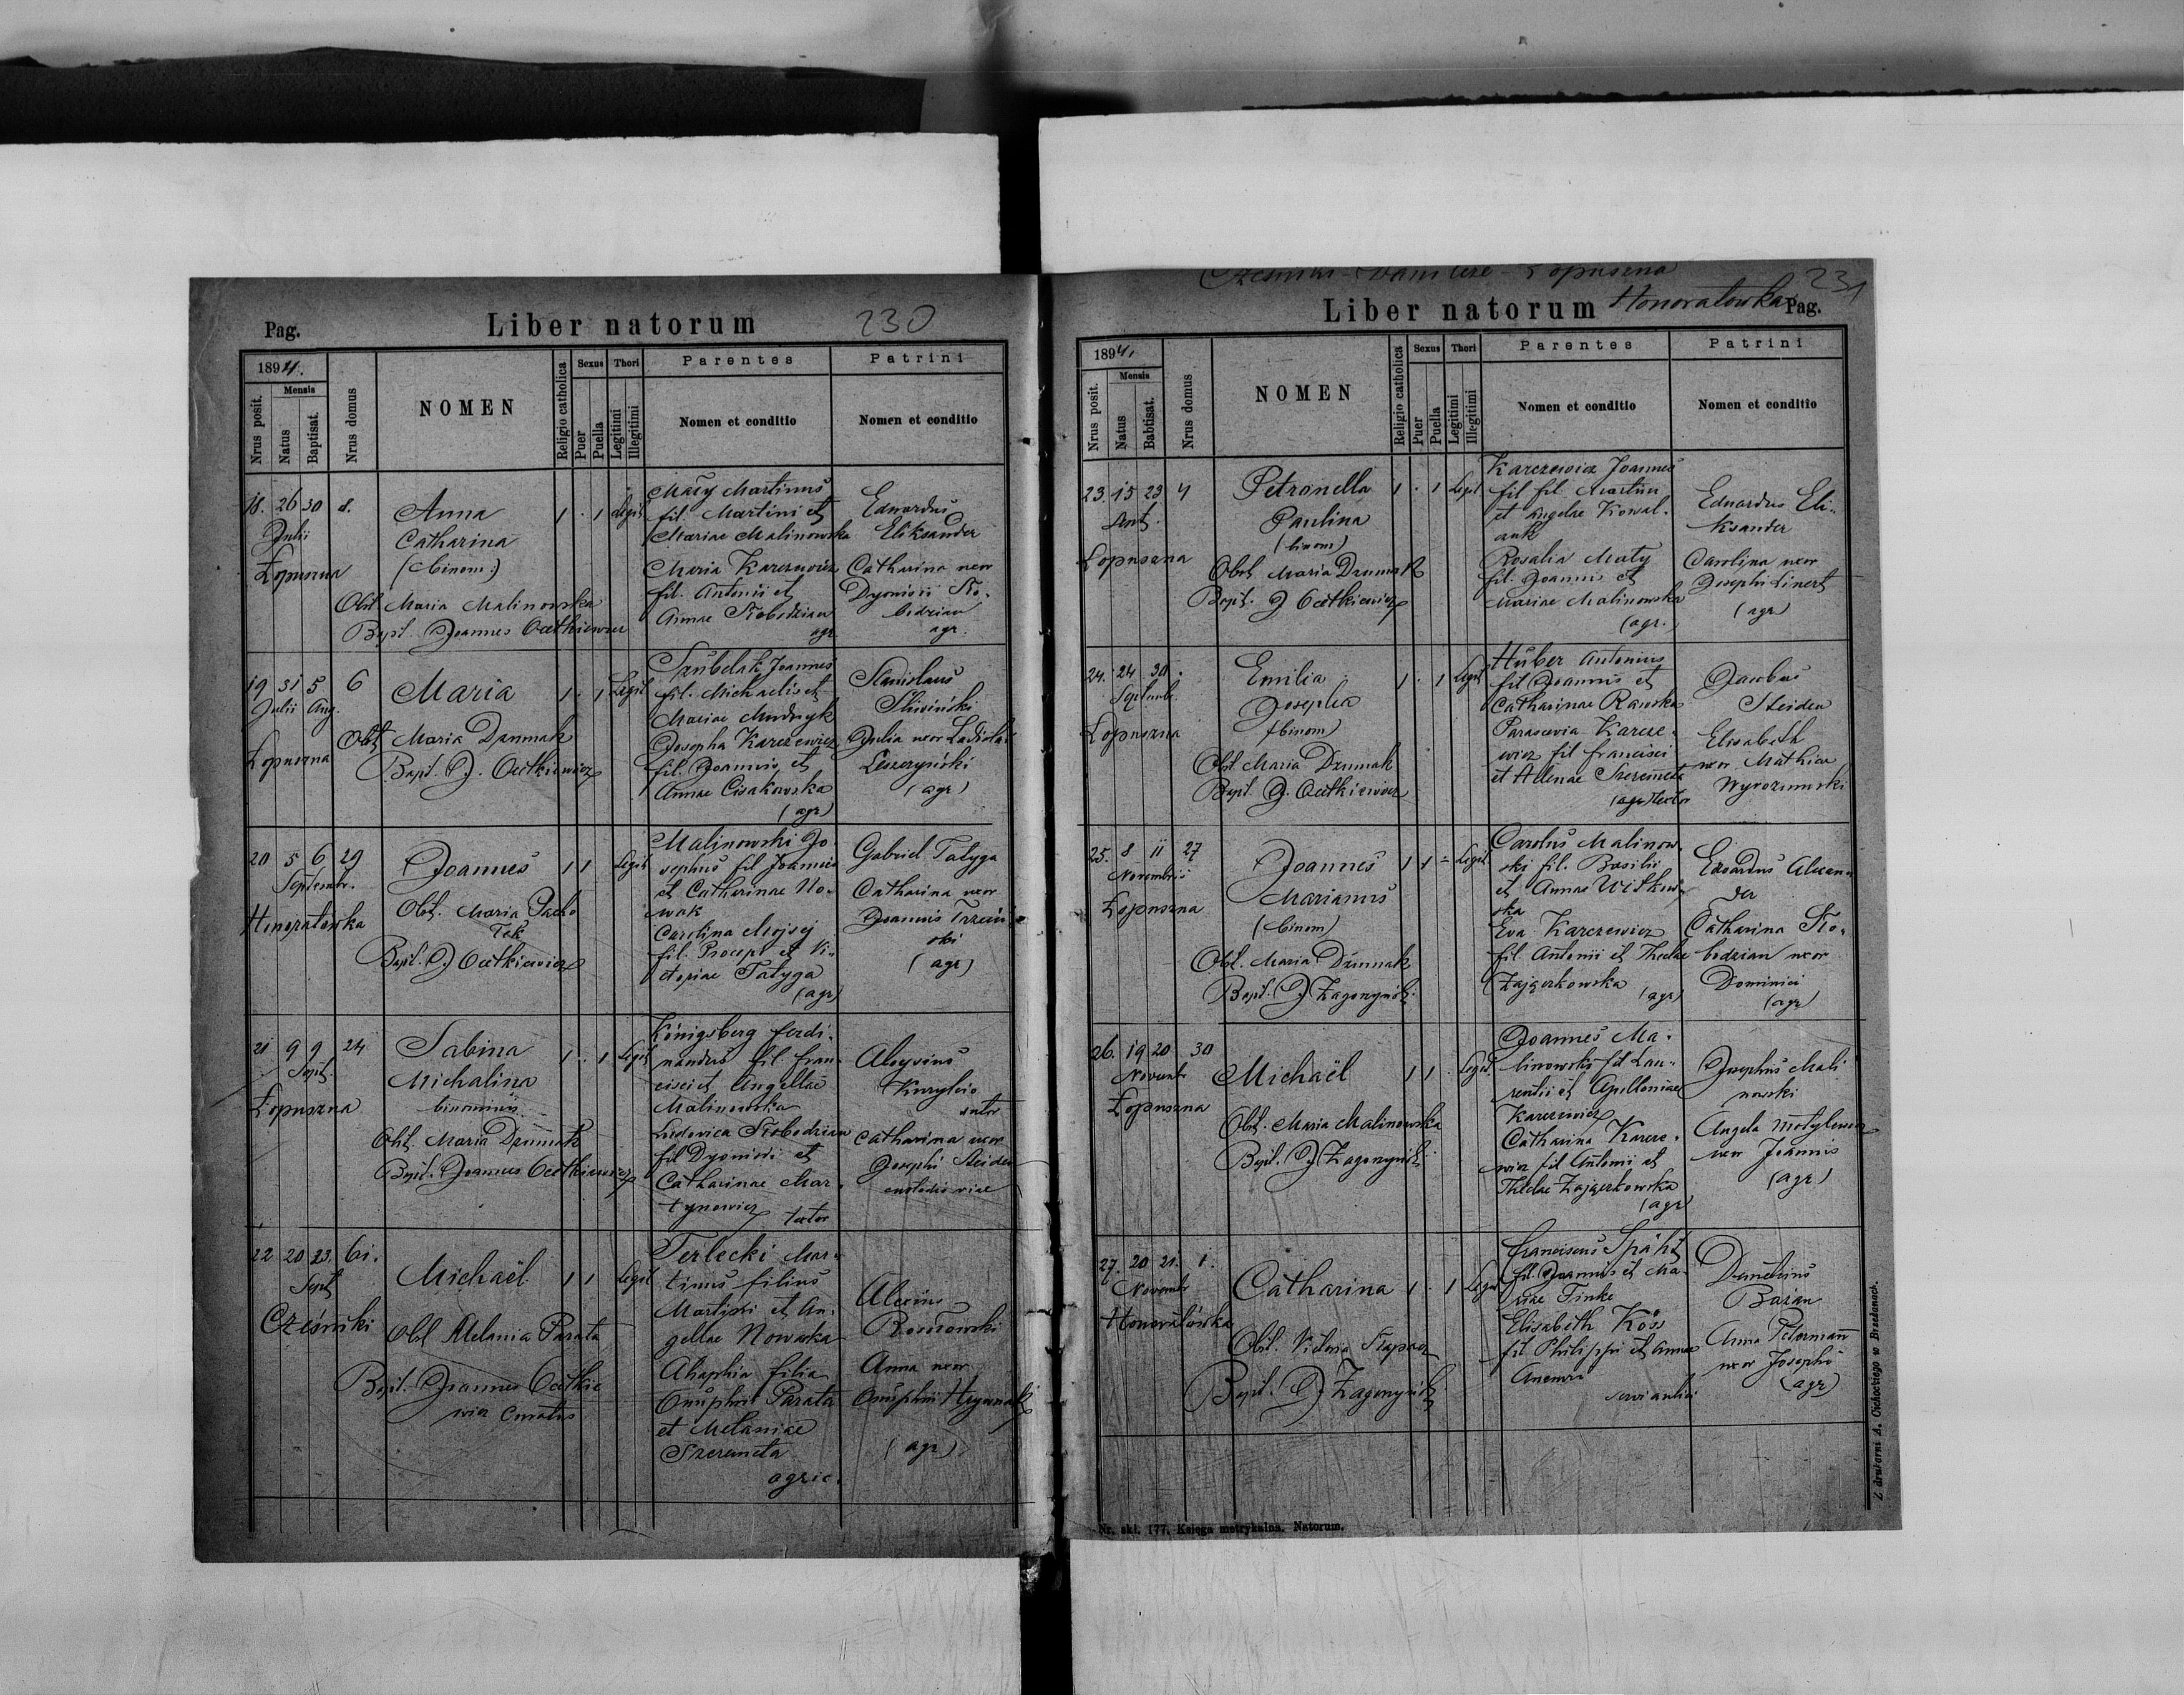 Pag.
Liber natorum
230
1894.
Nrus posit.
Mensis
Natus
Baptisat.
Nrus domus
NOMEN
Religio catholica
Sexus
Puer
Puella
Thori
Legitimi
Illegitimi
Parentes
Nomen et conditio
Patrini
Nomen et conditio
18. 26 30 8.
Julii
Łopuszna
Anna
Catharina
(binom:)
Obst Maria Malinowska
Bapt. Joannes Ocetkiewicz
1 . 1 Legit
Mały Martinus
fil. Martini et
Mariae Malinowska
Maria Karczewicz
fil. Antonii et
Annae Słobodzian
agr.
Eduardus
Eliksander
Catharina uxor
Dyonisii Sło-
bodzian
agr.
19 31 5 6
Julii Aug.
Łopuszna
Maria
Obst Maria Drumak
Bapt. J. Ocetkiewicz
1 . 1 Legit
Joannes
fil. Michaelis et
Mariae Mudryk
Josepha Karczewicz
fil. Joannis et
Annae Cisakowska
(agr)
Stanislaus
Śliwiński
Julia uxor Ladislai
Leszczyński
(agr)
20 5 6 29
Septembr.
Honoratówka
Joannes
Obst. Maria Pacho
lok
Bapt. J. Ocetkiewicz
1 1 Legit
Malinowski Jo
sephus fil Joannis
et Catharinae No-
wak
Carolina Mojsej
fil. Procopi et Vi-
ctoriae Tatyga
(agr)
Gabriel Tatyga
Catharina uxor
Joannis Trzeciń-
ski
(agr)
21 9 9 24
Sept.
Łopuszna
Sabina
Michalina
binominis
Obst. Maria Drumak
Bapt. Joannes Ocetkiewicz
1 . 1 Legit
Königsberg Ferdi-
nandus fil Fran-
cisci et Angellae
Malinowska
Ludovica Słobodzian
fil Dyonisii et
Catharinae Mar-
tynowicz textor
Aloysius
sutor
Catharina uxor
Josephi Steiden
custodis viae
22 20 23. 61.
Sept
Cześniki
Michaël
Obst Melania Parata
Bapt. Joannes Ocetkie
wicz Curatus
1 1 Legit
Terlecki Mar-
tinus filius
Martini et An-
gellae Nowacka
Ahaphia filia
Onuphrii Parata
et Melaniae
Szeremeta
agric.
Alexius
Rosnowski
Anna uxor
Onuphrii
(agr)
Łopuszna
Liber natorum
Honoratówka
Pag.
231
1894.
Nrus posit.
Mensis
Natus
Babtisat.
Nrus domus
NOMEN
Religio catholica
Sexus
Puer
Puella
Thori
Legitimi
Illegitimi
Parentes
Nomen et conditio
Patrini
Nomen et conditio
23. 15 23 4
Łopuszna
Petronella
Paulina
(binom)
Obst Maria Drumak
Bapt. J Ocetkiewicz
1 . 1 Legit
Karczewicz Joannes
fil fil. Martini
et Angelae Kowal-
auk
Rosalia Mały
fil. Joannis et
Mariae Malinowska
(agr.)
Eduardus Eli-
ksander
Carolina uxor
Josephi Linert
(agr)
24. 24 30 .
Septemb.
Łopuszna
Emilia
Josepha
(binom)
Obst Maria Drumak
Bapt. J. Ocetkiewicz
1 . 1 Legit
Huber Antonius
fil Joannis et
Catharinae Rawska
Parascevia Karcze-
wicz fil Francisci
et Helenae Szeremeta
(agr textor
Jacobus
Steiden
Elisabeth
uxor Mathiae
Wyrozumski
25. 8 11 27
Novembris
Łopuszna
Joannes
Marianus
(binom)
Obst. Maria Drumak
Bapt. J Zagonyński
1 1 - Legit.
Carolus Malinow-
ski fil. Basilii
et Annae Witkow-
ska
Eva Karczewicz
fil. Antonii et Theclae
Zajączkowska
(agr)
Edoardus Alexan-
der
Catharina Sło-
bodzian uxor
Dominici
(agr)
26. 19 20 30
Novemb
Łopuszna
Michaël
Obst. Maria Malinowska
Bapt. J Zagonyński
1 1 . Legit.
Joannes Ma-
linowski fil Lau-
rentii et Apolloniae
Karczewicz
Catharina Karcze-
wicz fil Antonii et
Theclae Zajączkowska
(agr)
Josephus Mali
nowski
Angela
uxor Joannis
(agr)
27. 20 21. 1.
Novemb
Honoratówka
Catharina
Obst. Victoria
Bapt. J Zagonyński
1 . 1 Legit
Franciscus Späht
fil. Joannis et Ma-
riae Finke
Elisabeth Köss
fil Philippi et Annae
Demetrius
Bazan
Anna Petermann
uxor Josephi
(agr)
Nr. skł. 177. Księga metrykalna. Natorum.
Z drukarni A. Cichockiego w Brzeżanach.